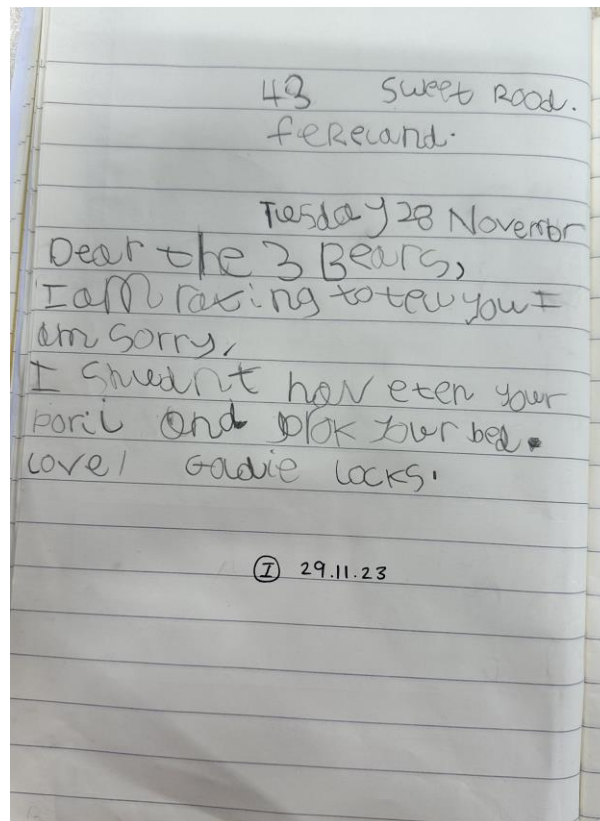 43 Sweet Rood.
fereland.
Tuesday 28 Novembr
Dear the 3 Bears,
I am rating to tell you I
am sorry,
I Shuednt hav eten your
poril and brok your bed.
Love, Goldie Locks.
I 29.11.23